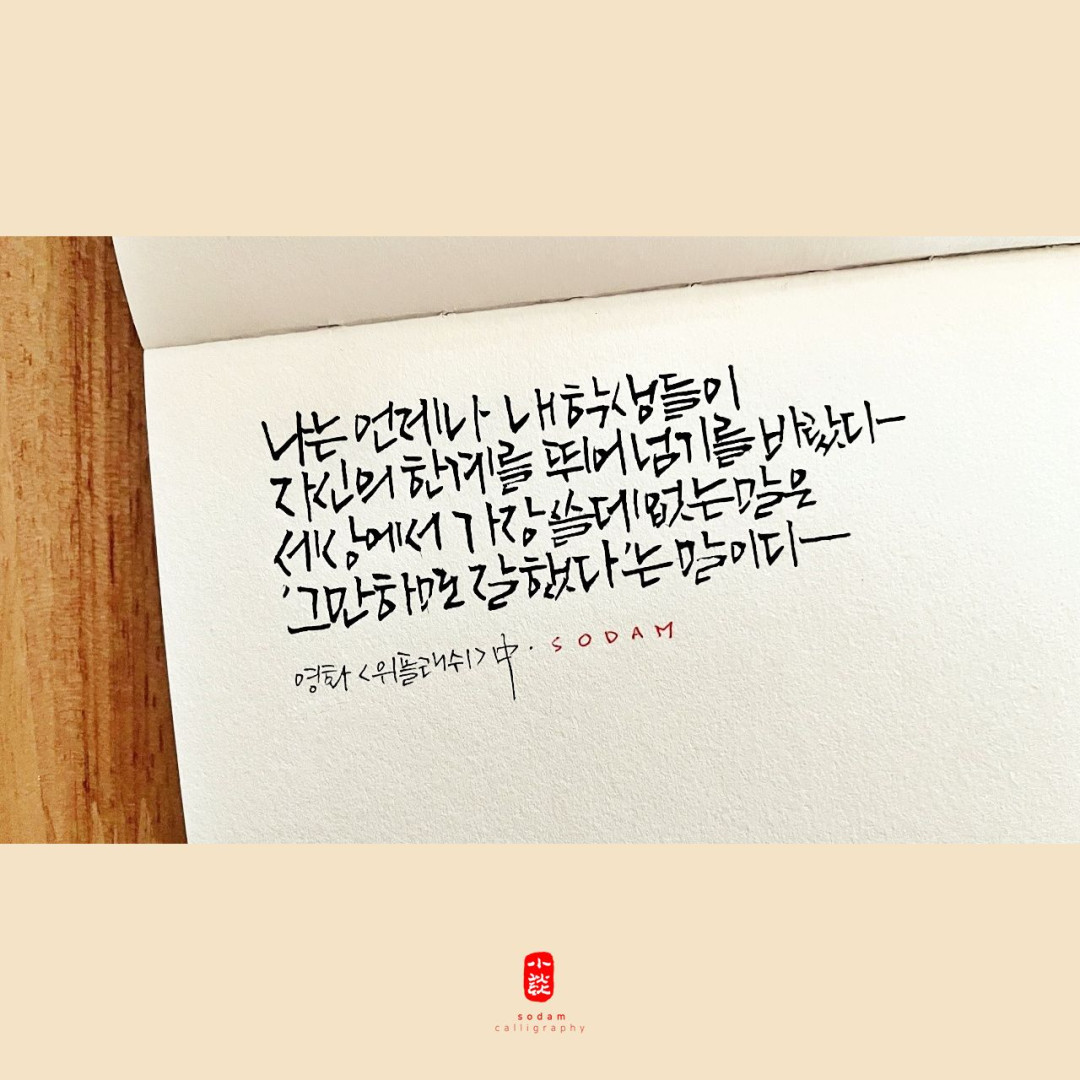 나는 언제나 내 학생들이
자신의 한계를 뛰어넘기를 바랐다-
세상에서 가장 쓸데없는 말은
'그만하면 잘했다'는 말이다-
영화 <위플래쉬> 中. SODAM
小談
sodam
calligraphy